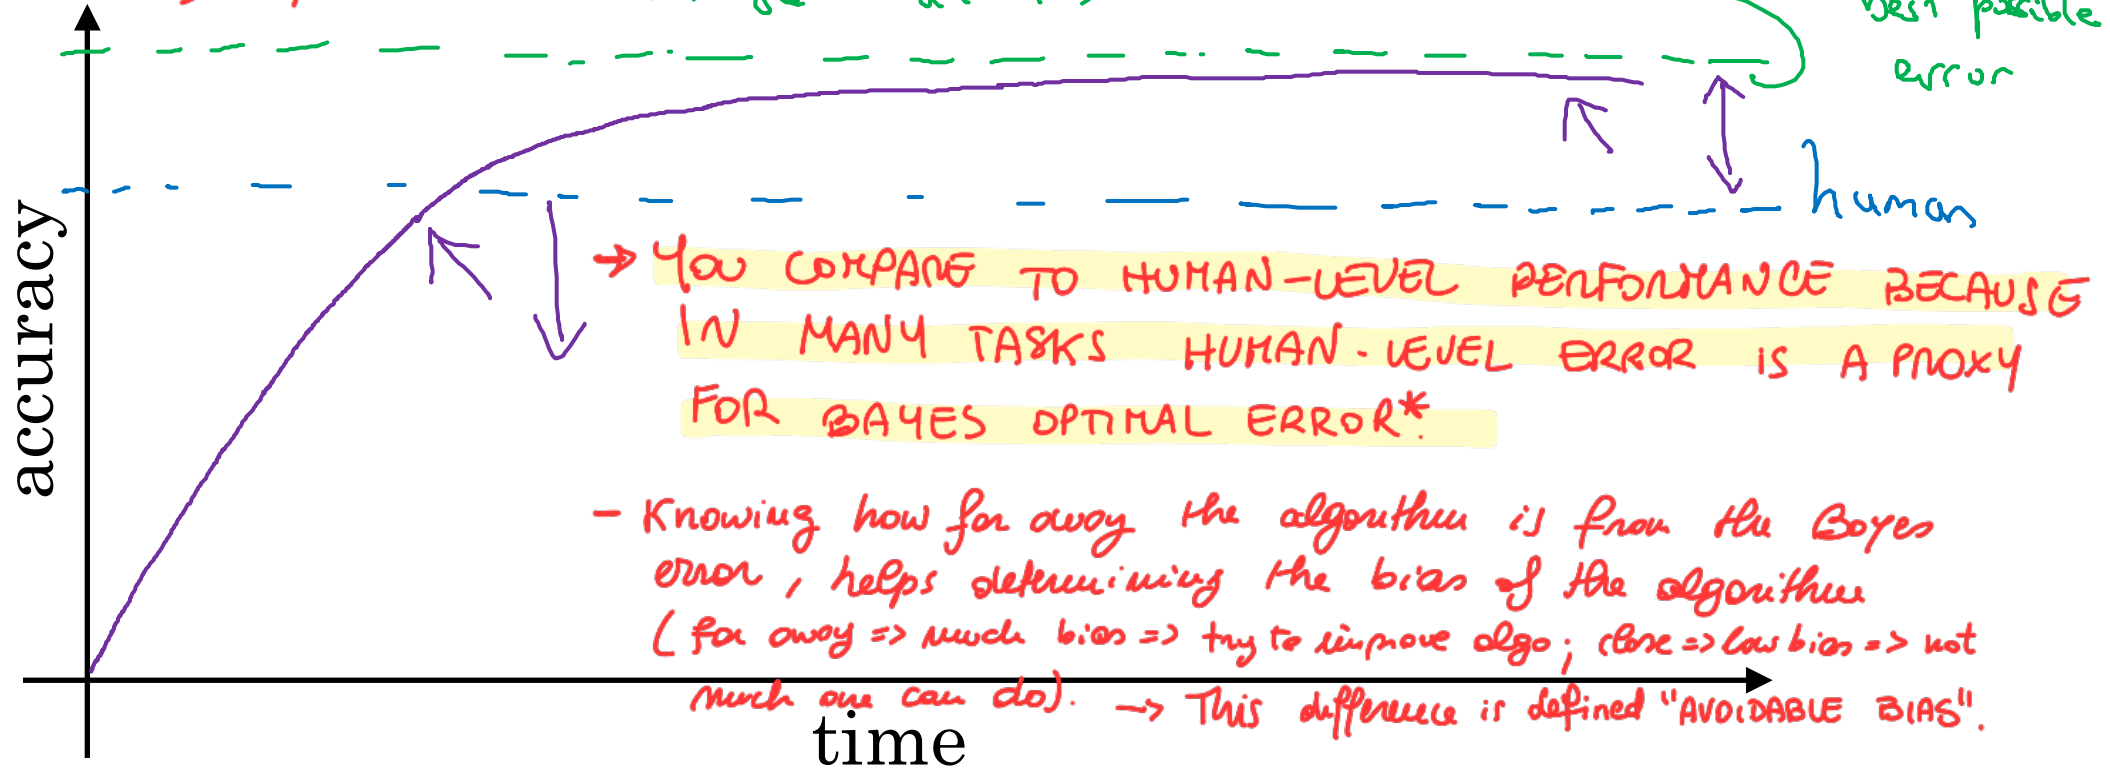 best possible
error
human
accuracy
→ YOU COMPARE TO HUMAN-LEVEL PERFORMANCE BECAUSE
IN MANY TASKS HUMAN-LEVEL ERROR IS A PROXY
FOR BAYES OPTIMAL ERROR*.
- Knowing how far away the algorithm is from the Bayes
error, helps determining the bias of the algorithm
(far away => much bias => try to improve algo; close => low bias => not
much one can do). → This difference is defined "AVOIDABLE BIAS".
time